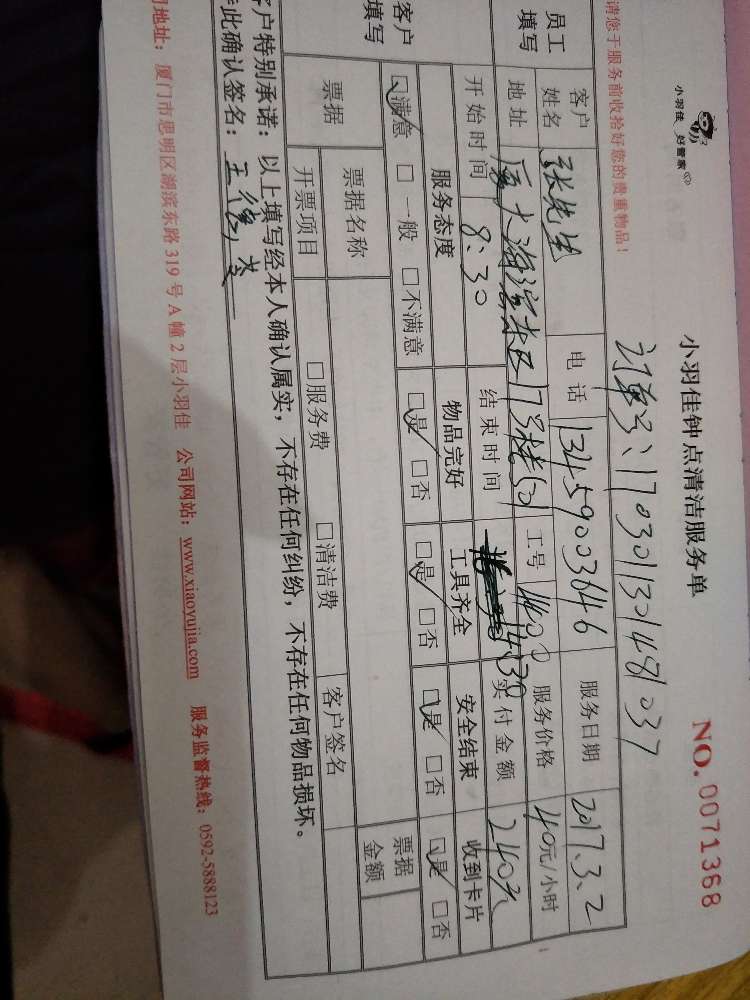 小羽佳 好管家
小羽佳钟点清洁服务单
NO. 0071368
请您于服务前收拾好您的贵重物品！
订单号：1703011301481037
员工填写 客户姓名 张先生 电话 13459003646 服务日期 2017.3.2
地址 厦大海滨东区17号楼501 工号 1400 服务价格 40元/小时
开始时间 8:30 结束时间 14:30 实付金额 240元
客户填写 服务态度 物品完好 工具齐全 安全结束 收到卡片
☑满意 □一般 □不满意 ☑是 □否 ☑是 □否 ☑是 □否 ☑是 □否
票据 票据名称 票据金额
开票项目 □服务费 □清洁费 客户签名
客户特别承诺：以上填写经本人确认属实，不存在任何纠纷，不存在任何物品损坏。
此确认签名：王
地址：厦门市思明区湖滨东路319号A幢2层小羽佳 公司网站：www.xiaoyujia.com 服务监督热线：0592-5888123